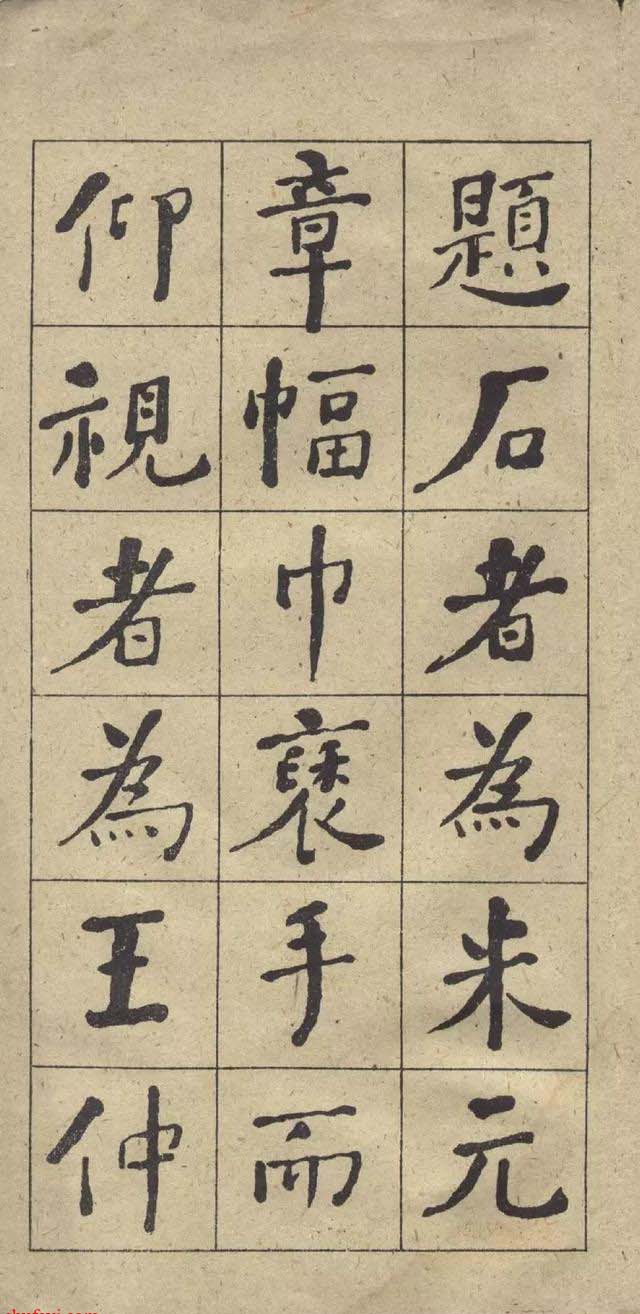 題石者為米元
章幅巾褎手而
仰視者為王仲